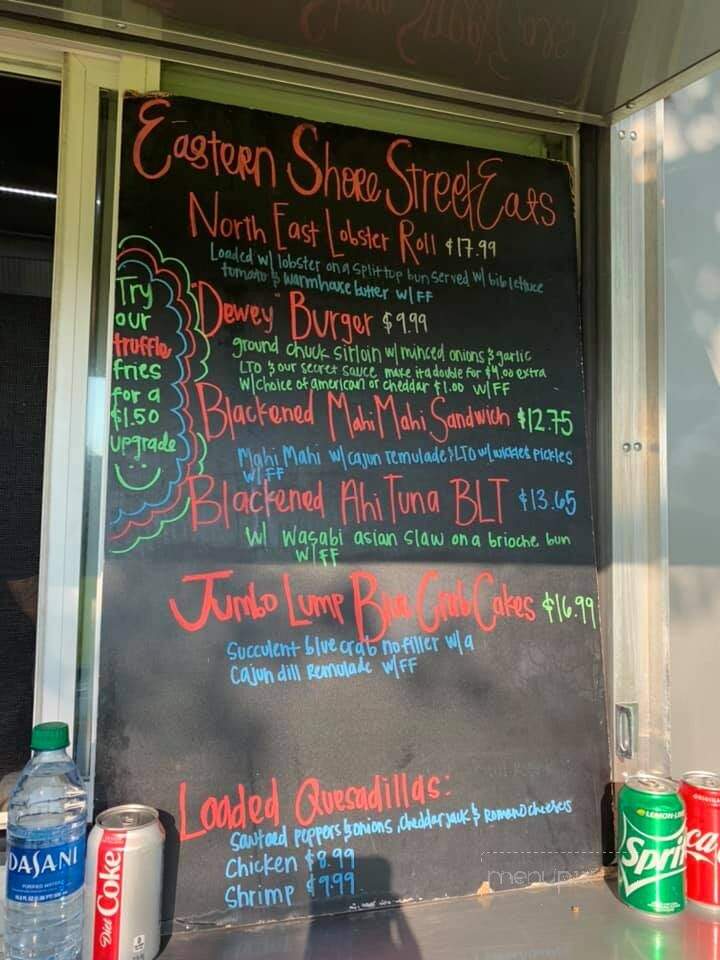 Eastern Shore Street Eats
North East Lobster Roll $17.99
Loaded w/ lobster on a split top bun served w/ bib lettuce
tomato & warmhause butter w/FF
Try
our
truffle
fries
for a
$1.50
upgrade
"Dewey" Burger $9.99
ground chuck sirloin w/ minced onions & garlic
LTO & our secret sauce make it a double for $4.00 extra
w/choice of american or cheddar $1.00 w/FF
Blackened Mahi Mahi Sandwich $12.75
Mahi Mahi w/ cajun remulade & LTO w/ wickles pickles
w/FF
Blackened Ahi Tuna BLT $13.65
w/ wasabi asian slaw on a brioche bun
w/FF
Jumbo Lump Blue Crab Cakes $16.99
Succulent blue crab no filler w/a
Cajun dill remulade w/FF
Loaded Quesadillas:
sautaed peppers & onions, cheddar jack & Romano cheeses
Chicken $8.99
Shrimp $9.99
DASANI
PURIFIED WATER
Diet Coke
LEMON-LIM
Sprit
ca
menupix